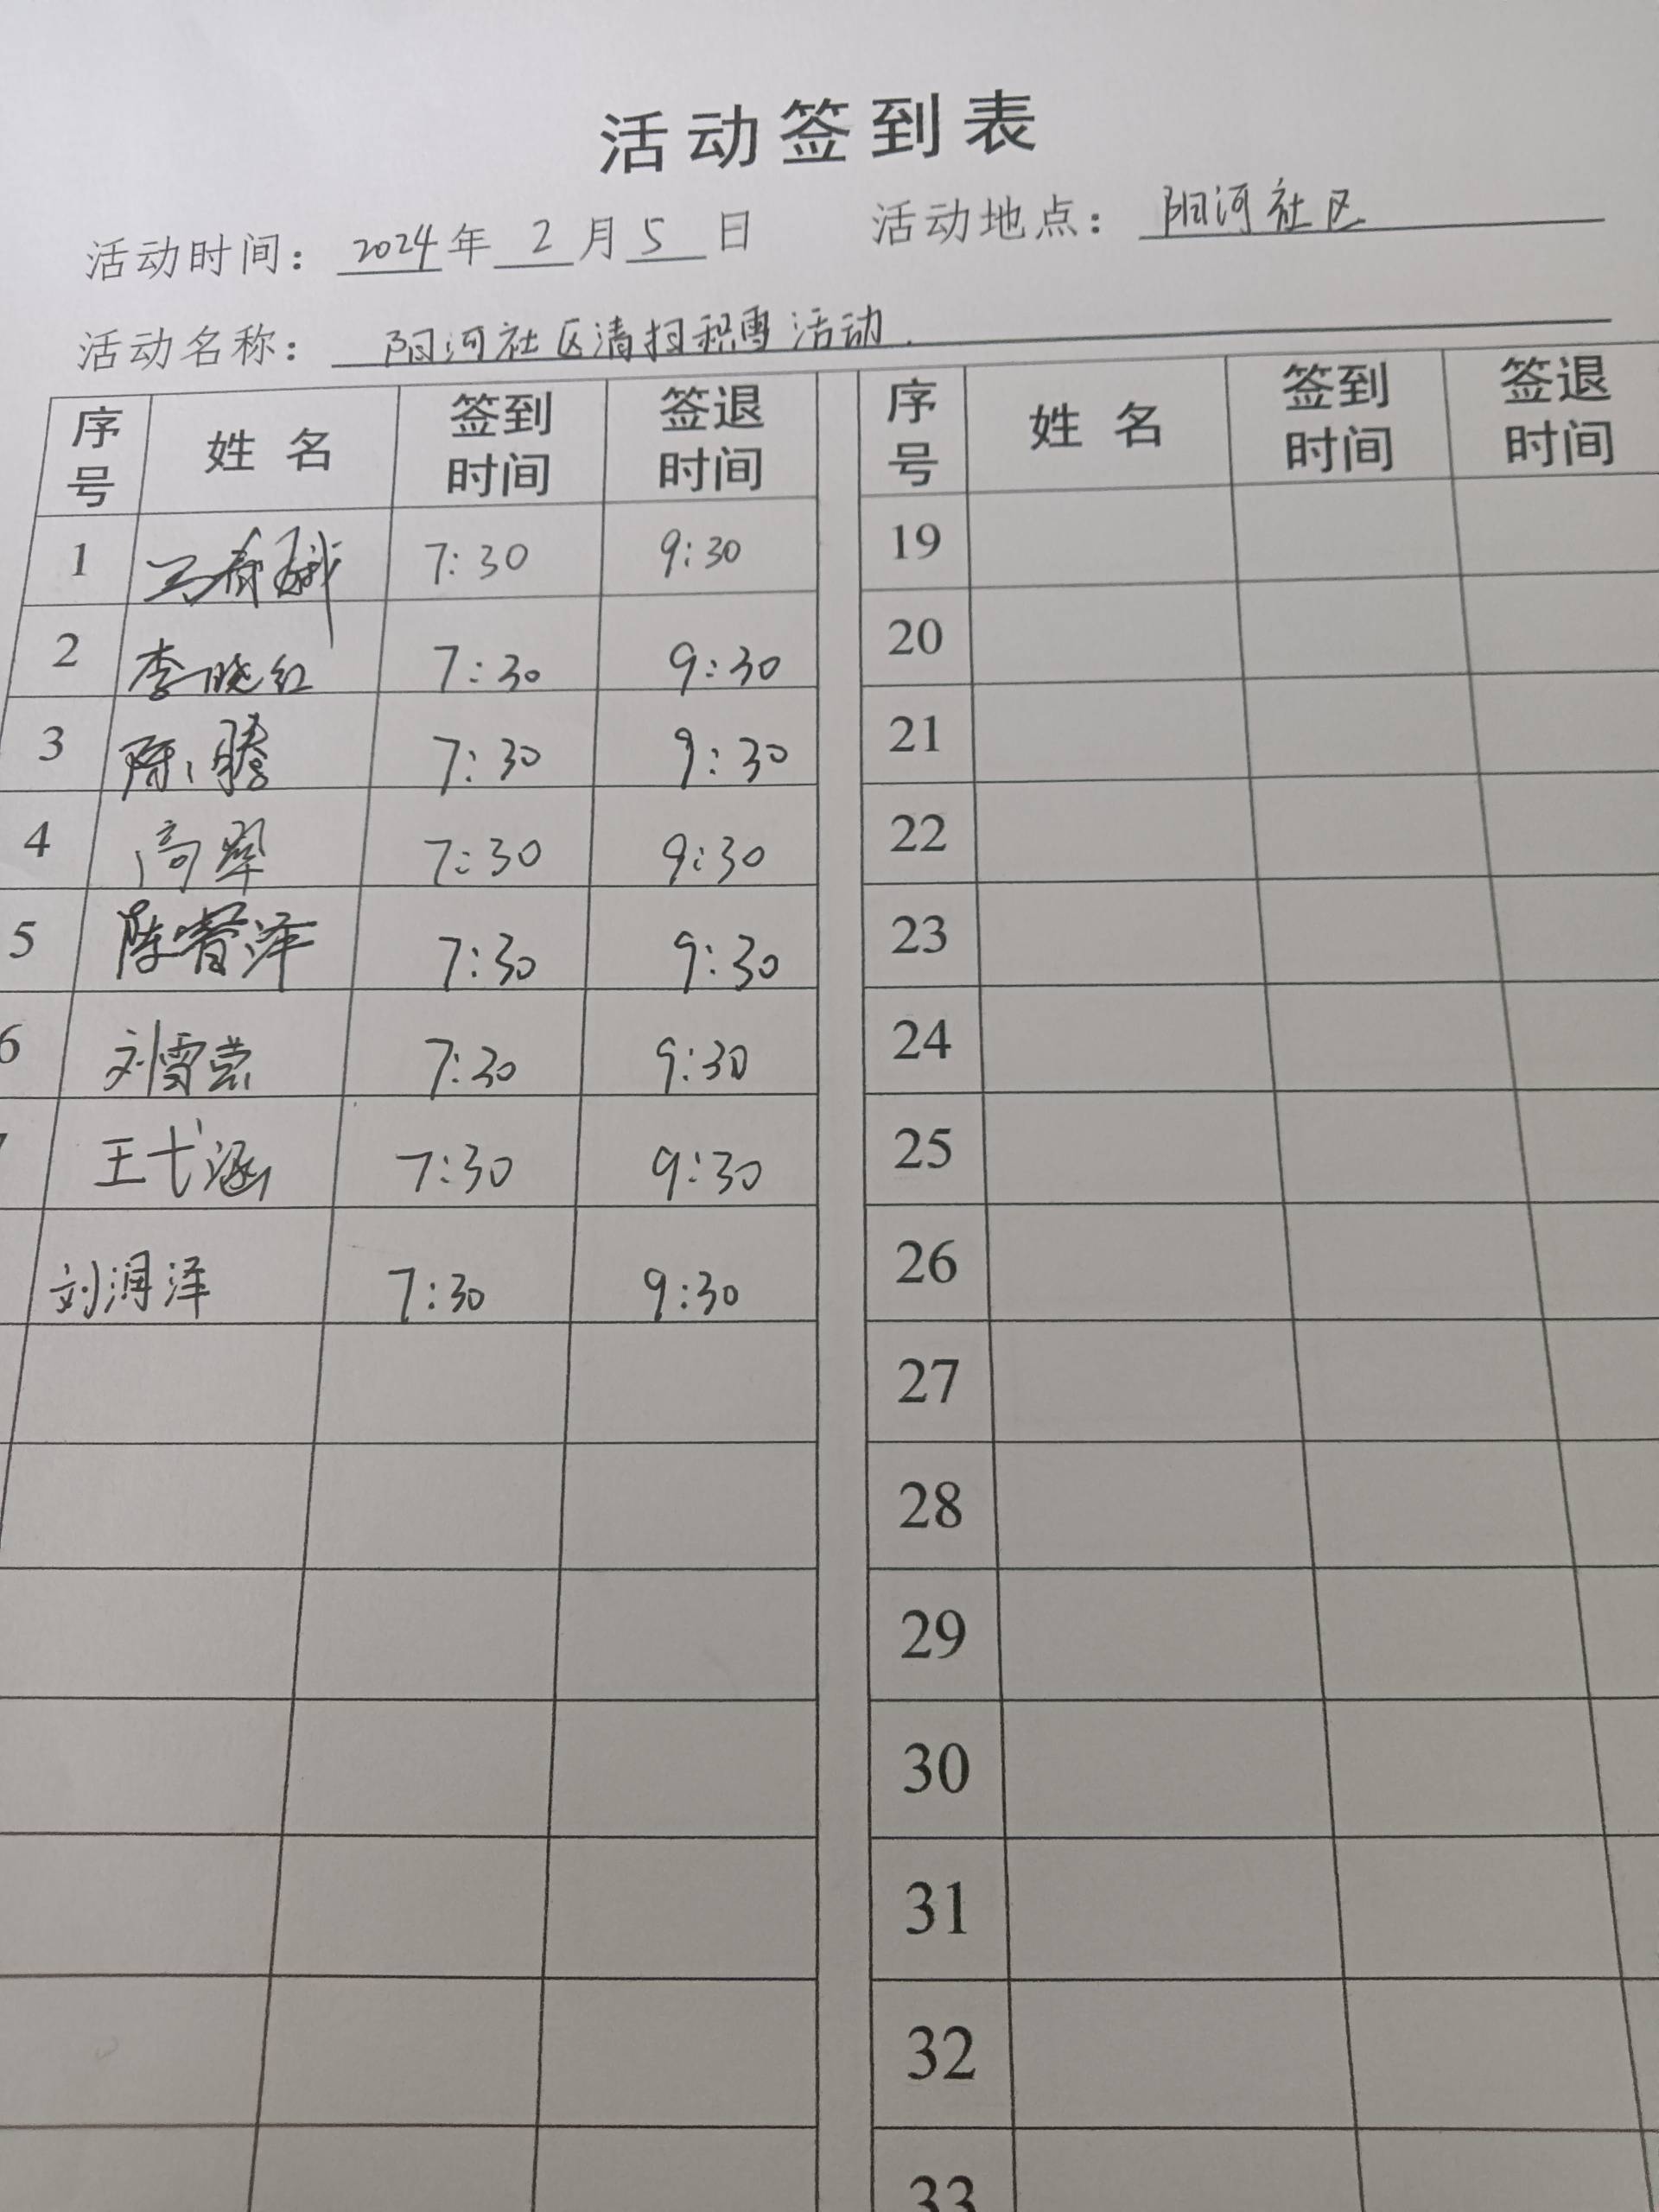 活动签到表
活动时间：2024年2月5日 活动地点：阳河社区
活动名称：阳河社区清扫积雪活动.
序号 姓名 签到时间 签退时间 序号 姓名 签到时间 签退时间
1 7:30 9:30 19
2 李晓红 7:30 9:30 20
3 陈腾 7:30 9:30 21
4 高翠 7:30 9:30 22
5 陈泽 7:30 9:30 23
6 刘雪莹 7:30 9:30 24
王弋涵 7:30 9:30 25
刘润泽 7:30 9:30 26
27
28
29
30
31
32
33